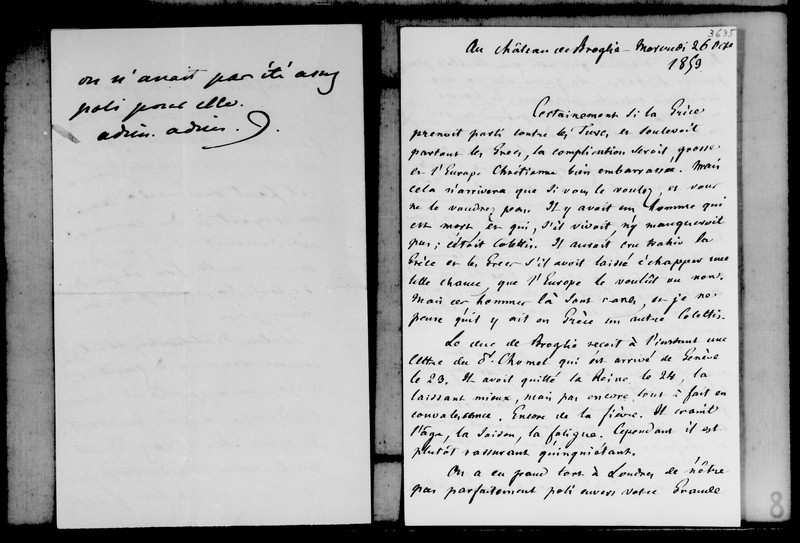 on n'avait pas été assez
poli pour elle.
adieu. adieu.
3635
Au château de Broglie - Mercredi 26 Oct
1853
Certainement si la Grèce
prenoit parti contre les Turcs et soulevoit
partout les Grecs, la complication seroit grosse
et l'Europe Chrétienne bien embarrassée. Mais
cela n'arrivera que si vous le voulez, et vous
ne le voudrez pas. Il y avoit un homme qui
est mort, et qui, s'il vivoit, n'y manqueroit
pas ; c'étoit Colettis. Il auroit cru trahir la
Grèce et les Grecs s'il avoit laissé échapper une
telle chance, que l'Europe le voulût ou non.
Mais ces hommes là sont rares, et je ne
pense qu'il y ait en Grèce un autre Colettis.
Le duc de Broglie reçoit à l'instant une
lettre du Dr. Chomel qui est arrivé de Genève
le 23. Il avoit quitté la Reine le 24, la
laissant mieux, mais pas encore tout à fait en
convalescence. Encore de la fièvre. Il craint
l'âge, la saison, la fatigue. Cependant il est
plutôt rassurant qu'inquiétant.
On a eu grand tort à Londres de n'être
pas parfaitement poli envers votre Grande
8